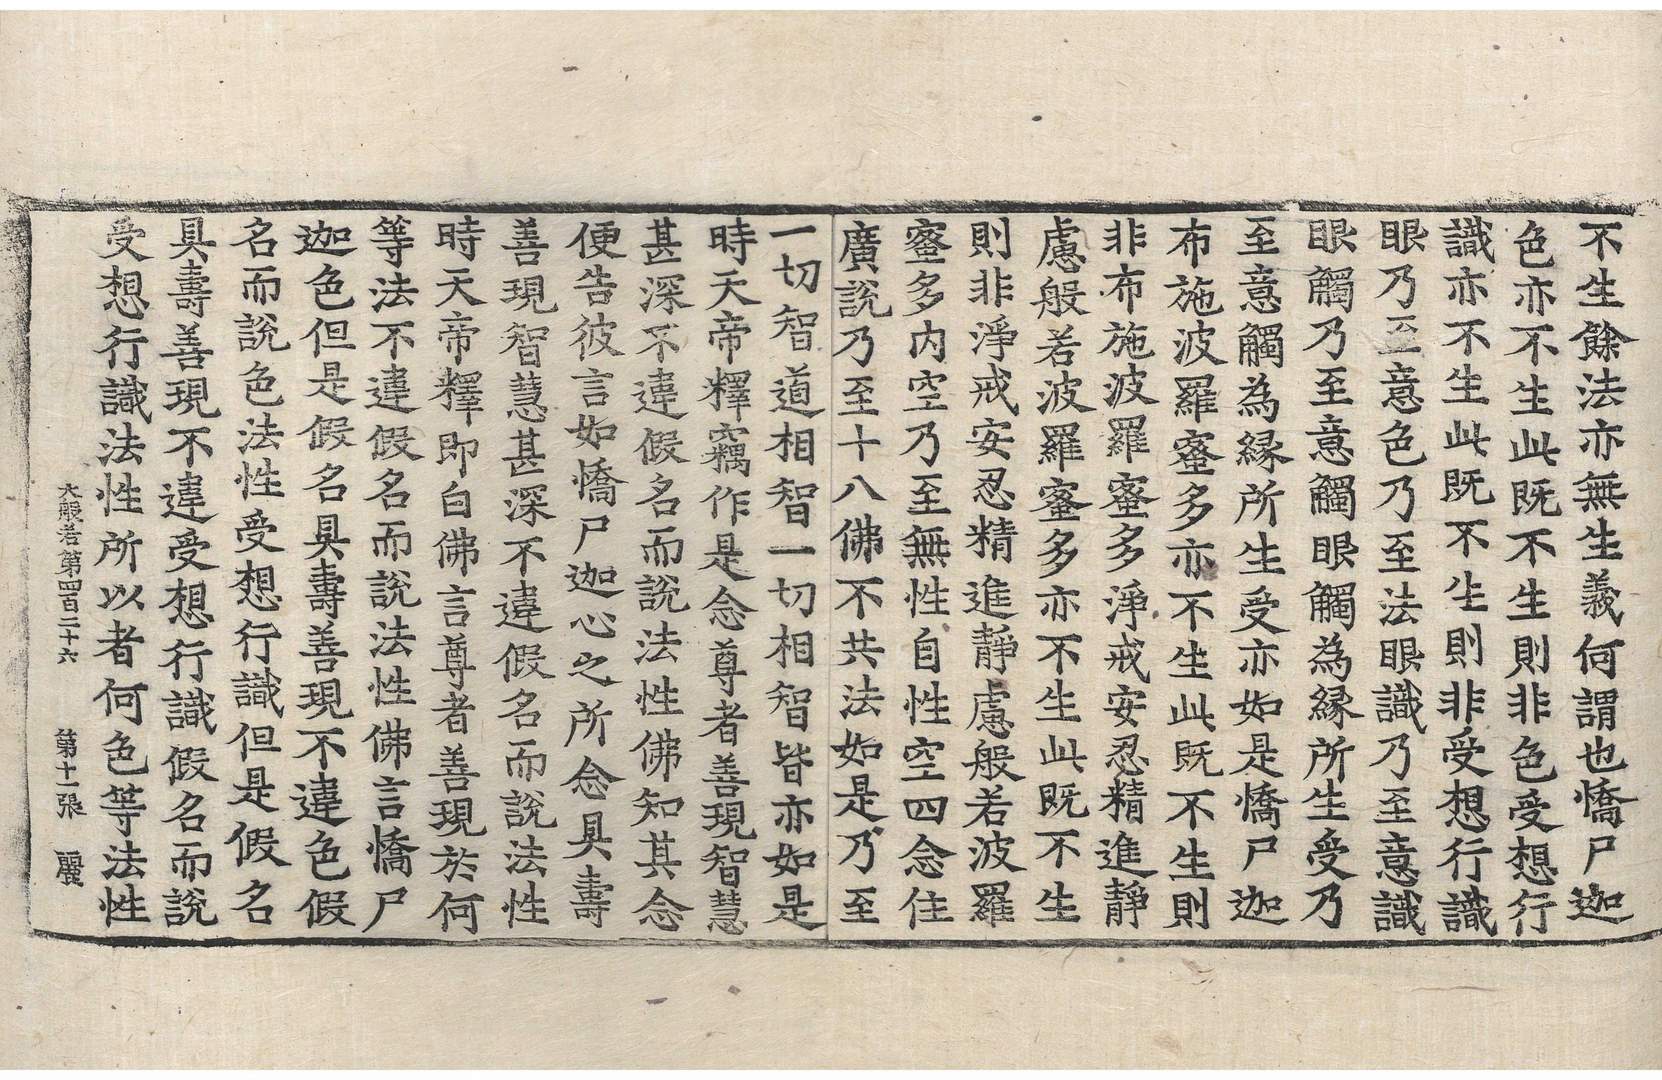 不生餘法亦無生義何謂也憍尸迦
色亦不生此既不生則非色受想行
識亦不生此既不生則非受想行識
眼乃至意色乃至法眼識乃至意識
眼觸乃至意觸眼觸為緣所生受乃
至意觸為緣所生受亦如是憍尸迦
布施波羅蜜多亦不生此既不生則
非布施波羅蜜多淨戒安忍精進靜
慮般若波羅蜜多亦不生此既不生
則非淨戒安忍精進靜慮般若波羅
蜜多內空乃至無性自性空四念住
廣說乃至十八佛不共法如是乃至
一切智道相智一切相智皆亦如是
時天帝釋竊作是念尊者善現智慧
甚深不違假名而說法性佛知其念
便告彼言如憍尸迦心之所念具壽
善現智慧甚深不違假名而說法性
時天帝釋即白佛言尊者善現於何
等法不違假名而說法性佛言憍尸
迦色但是假名具壽善現不違色假
名而說色法性受想行識但是假名
具壽善現不違受想行識假名而說
受想行識法性所以者何色等法性
大般若第四百二十六 第十一張 麗